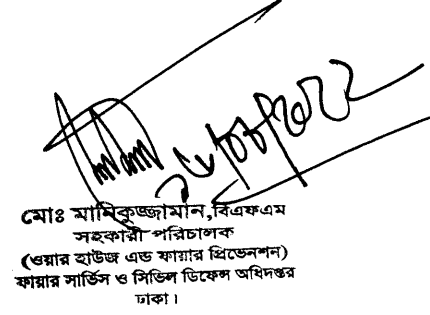 মোঃ মানিকুজ্জামান,বিএফএম
সহকারী পরিচালক
(ওয়ার হাউজ এন্ড ফায়ার প্রিভেনশন)
ফায়ার সার্ভিস ও সিভিল ডিফেন্স অধিদপ্তর
ঢাকা।